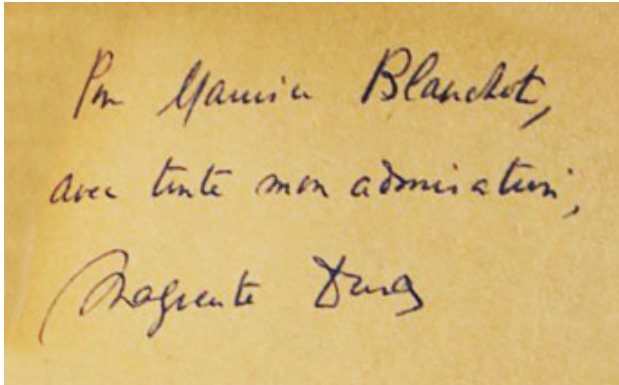 Pour Maurice Blanchot,
avec toute mon admiration,
Marguerite Duras